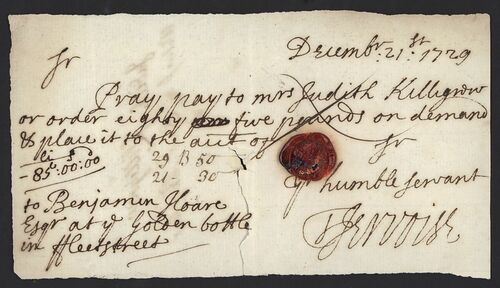 Decembr. 21st. 1729
Sr
Pray pay to mrs Judith Killigrew
or order eighty five pounds on demand
& place it to the acct of
Sr
li s d
- 85:00:00
29 B 50
21 - 30
yr humble servant
to Benjamin Hoare
Esqr at ye Golden bottle
in ffleetstreet
T Jervoise